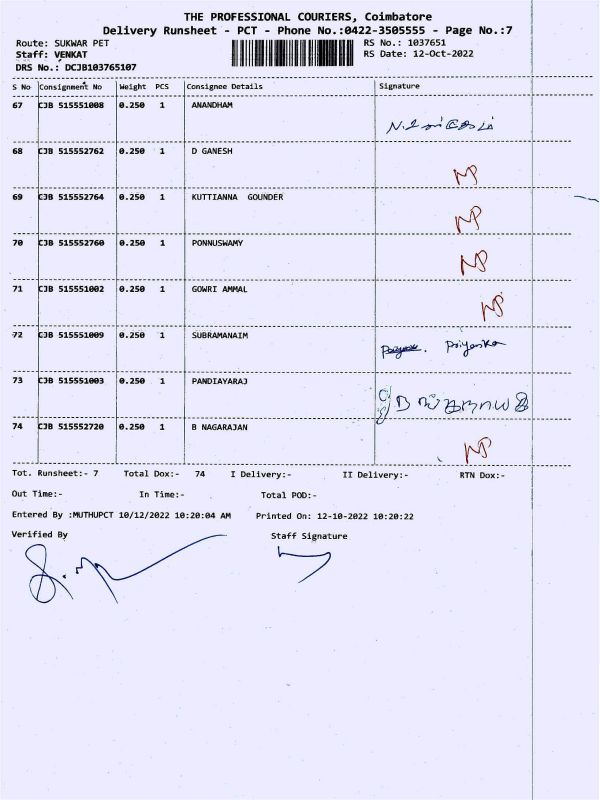 THE PROFESSIONAL COURIERS, Coimbatore
Delivery Runsheet - PCT - Phone No.:0422-3505555 - Page No.:7
Route: SUKWAR PET RS No.: 1037651
Staff: VENKAT RS Date: 12-Oct-2022
DRS No.: DCJB103765107
S No Consignment No Weight PCS Consignee Details Signature
67 CJB 515551008 0.250 1 ANANDHAM
68 CJB 515552762 0.250 1 D GANESH NP
69 CJB 515552764 0.250 1 KUTTIANNA GOUNDER NP
70 CJB 515552760 0.250 1 PONNUSWAMY NP
71 CJB 515551002 0.250 1 GOWRI AMMAL NP
72 CJB 515551009 0.250 1 SUBRAMANAIM Priyanka
73 CJB 515551003 0.250 1 PANDIAYARAJ
74 CJB 515552720 0.250 1 B NAGARAJAN NP
Tot. Runsheet:- 7 Total Dox:- 74 I Delivery:- II Delivery:- RTN Dox:-
Out Time:- In Time:- Total POD:-
Entered By :MUTHUPCT 10/12/2022 10:20:04 AM Printed On: 12-10-2022 10:20:22
Verified By Staff Signature